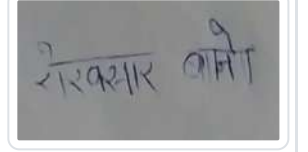 रोखसार बानो